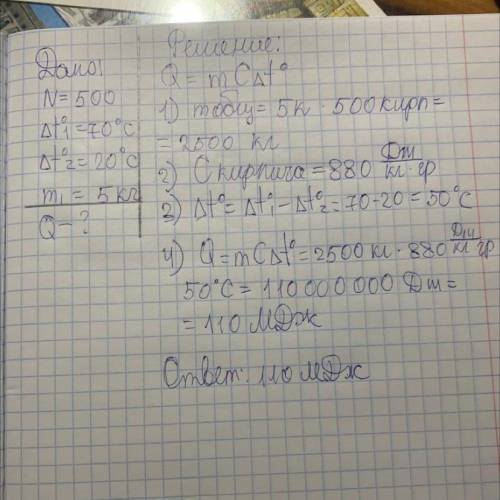 Дано:
N = 500
Δt°1 = 70°C
Δt°2 = 20°C
m1 = 5 кг
Q - ?
Решение:
Q = mCΔt°
1) mобщ = 5к · 500кирп =
= 2500 кг
2) C кирпича = 880 Дж/кг·гр
3) Δt° = Δt°1 - Δt°2 = 70-20 = 50°C
4) Q = mCΔt° = 2500 кг · 880 Дж/кг гр
50°C = 110 000 000 Дж =
= 110 МДж
Ответ: 110 МДж